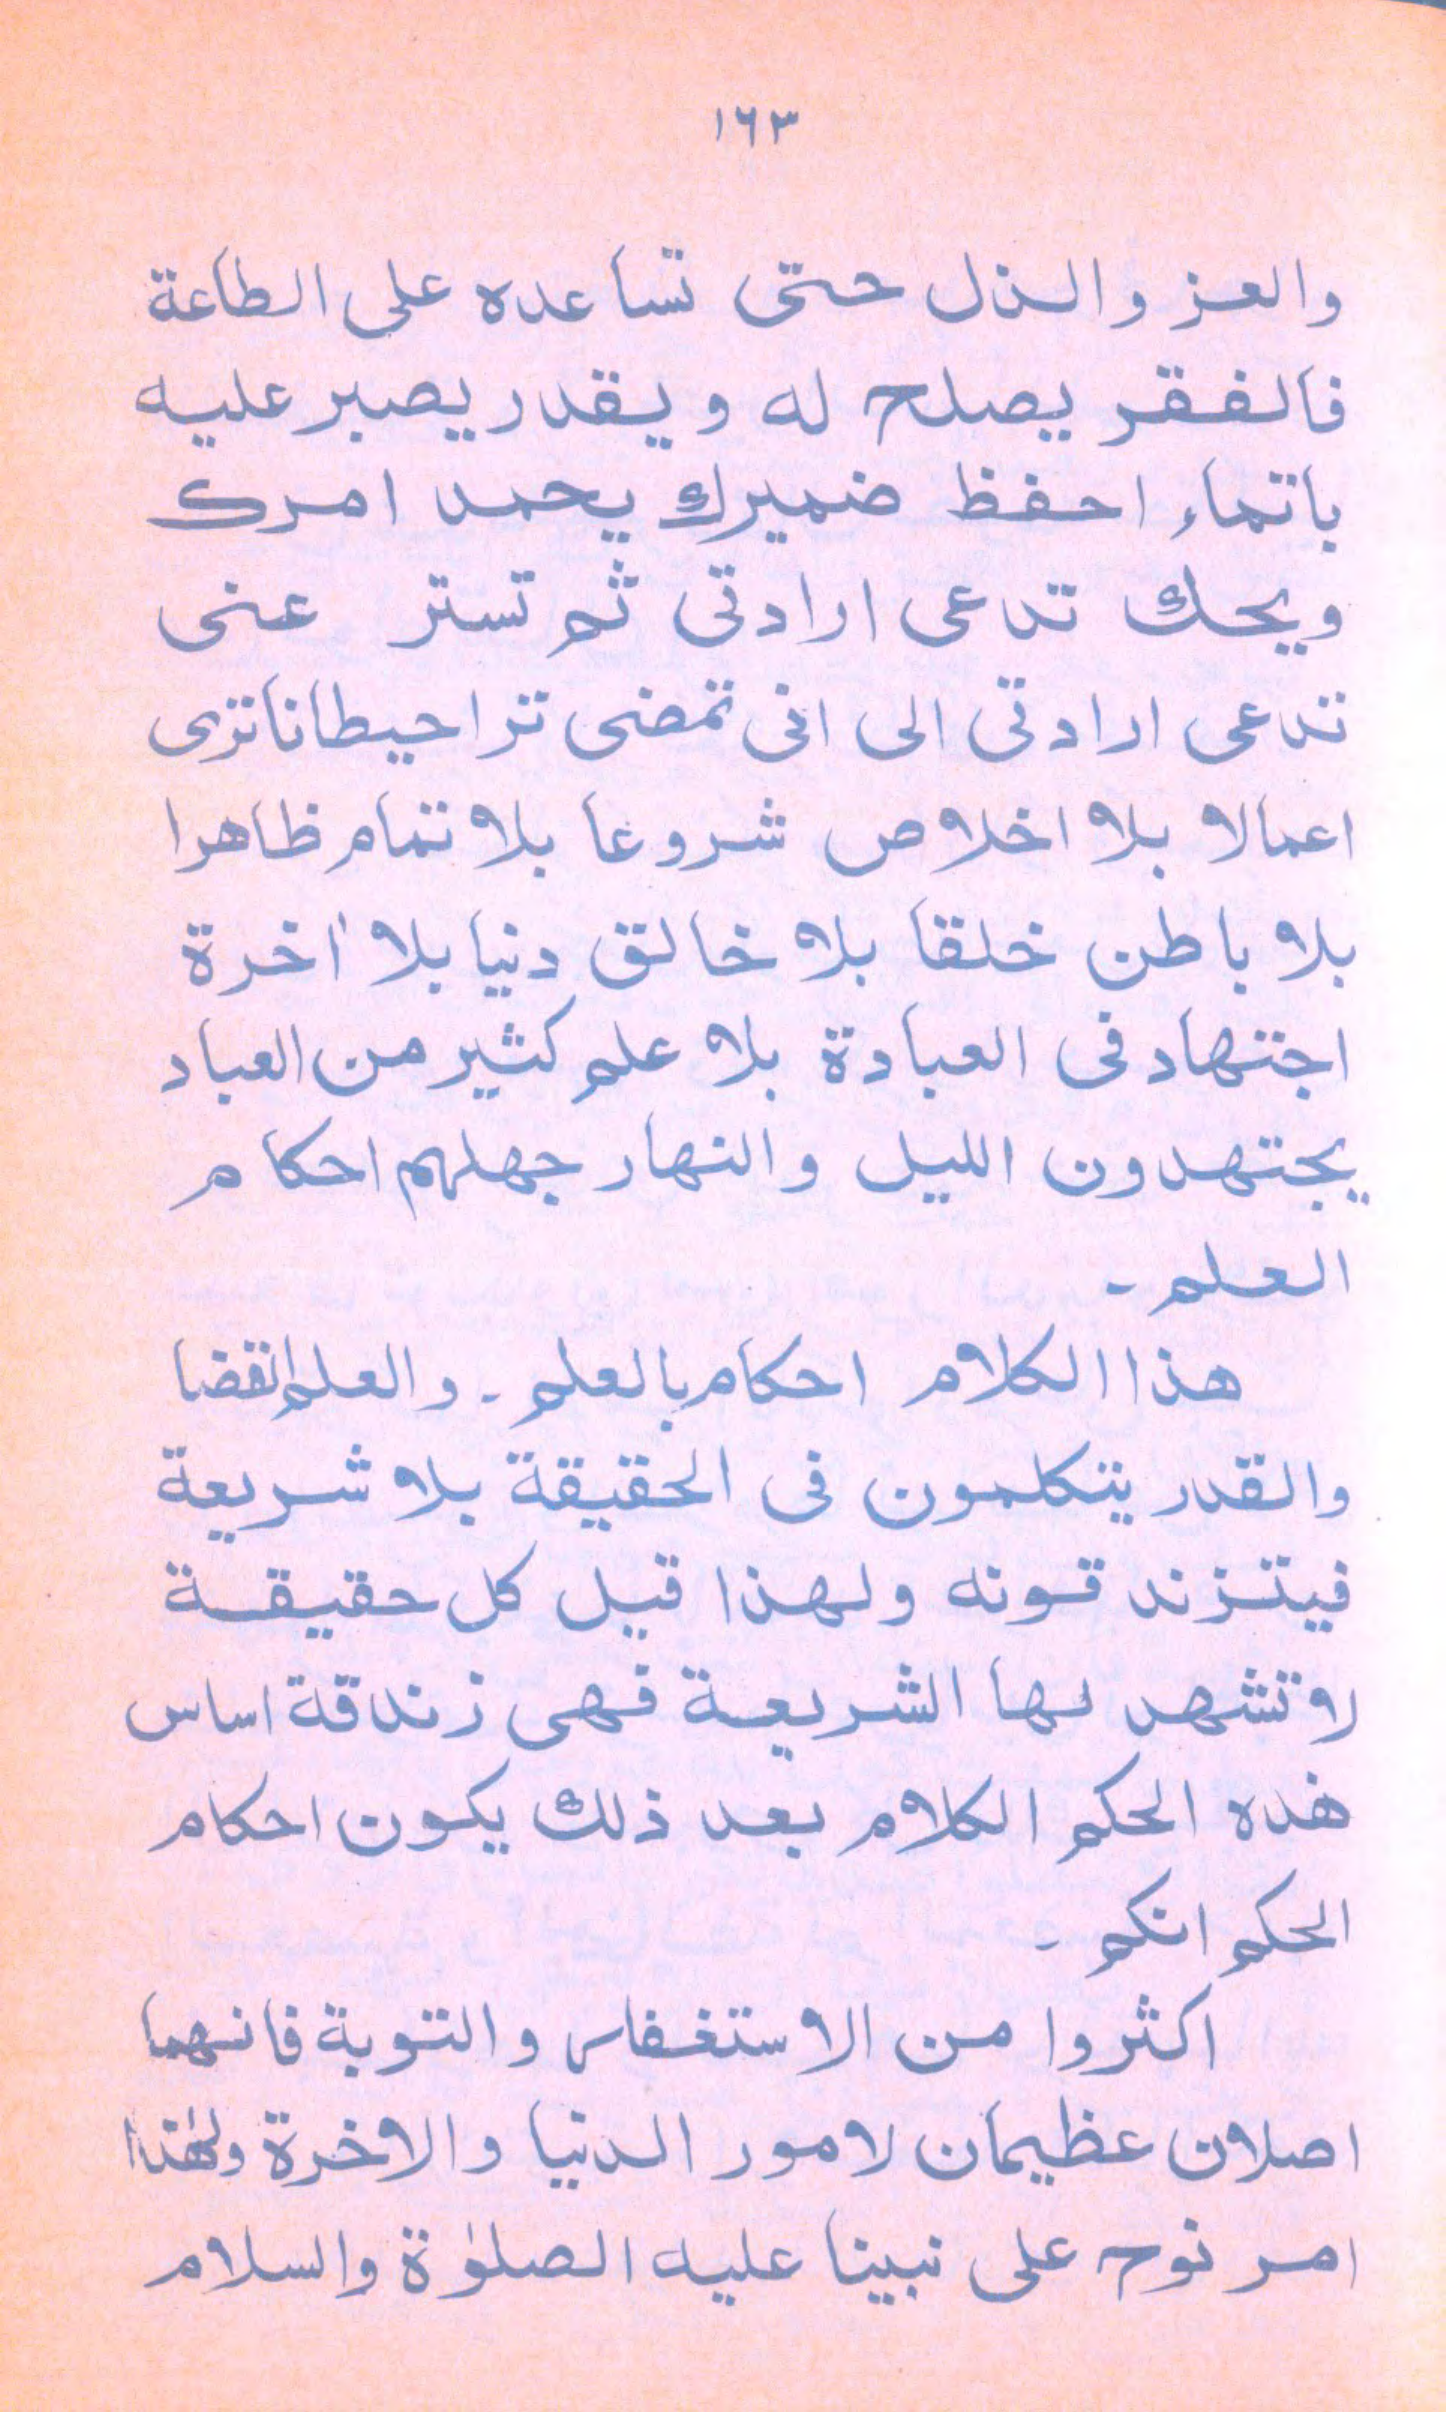 ١٦٣
والعز والذل حتى تساعده على الطاعة
فالفقر يصلح له ويقدر يصبر عليه
باتماء احفظ ضميرك يحمد امرك
ويحك تدعى ارادتى ثم تستر عنى
تدعى ارادتى الى انى تمضى ترا حيطانا ترى
اعمالا بلا اخلاص شروعا بلا تمام ظاهرا
بلا باطن خلقا بلا خالق دنيا بلا أخرة
اجتهاد فى العبادة بلا علم كثير من العباد
يجتهدون الليل والنهار جهلهم احكام
العلم ـ
هذا الكلام احكام بالعلم ـ والعلم القضا
والقدر يتكلمون فى الحقيقة بلا شريعة
فيتزند قونه ولهذا قيل كل حقيقة
لا تشهد لها الشريعة فهى زندقة اساس
هذه الحكم الكلام بعد ذلك يكون احكام
الحكم انكم ـ
اكثروا من الاستغفار والتوبة فانهما
اصلان عظيمان لامور الدنيا والاخرة ولهذا
امر نوح على نبينا عليه الصلوٰة والسلام